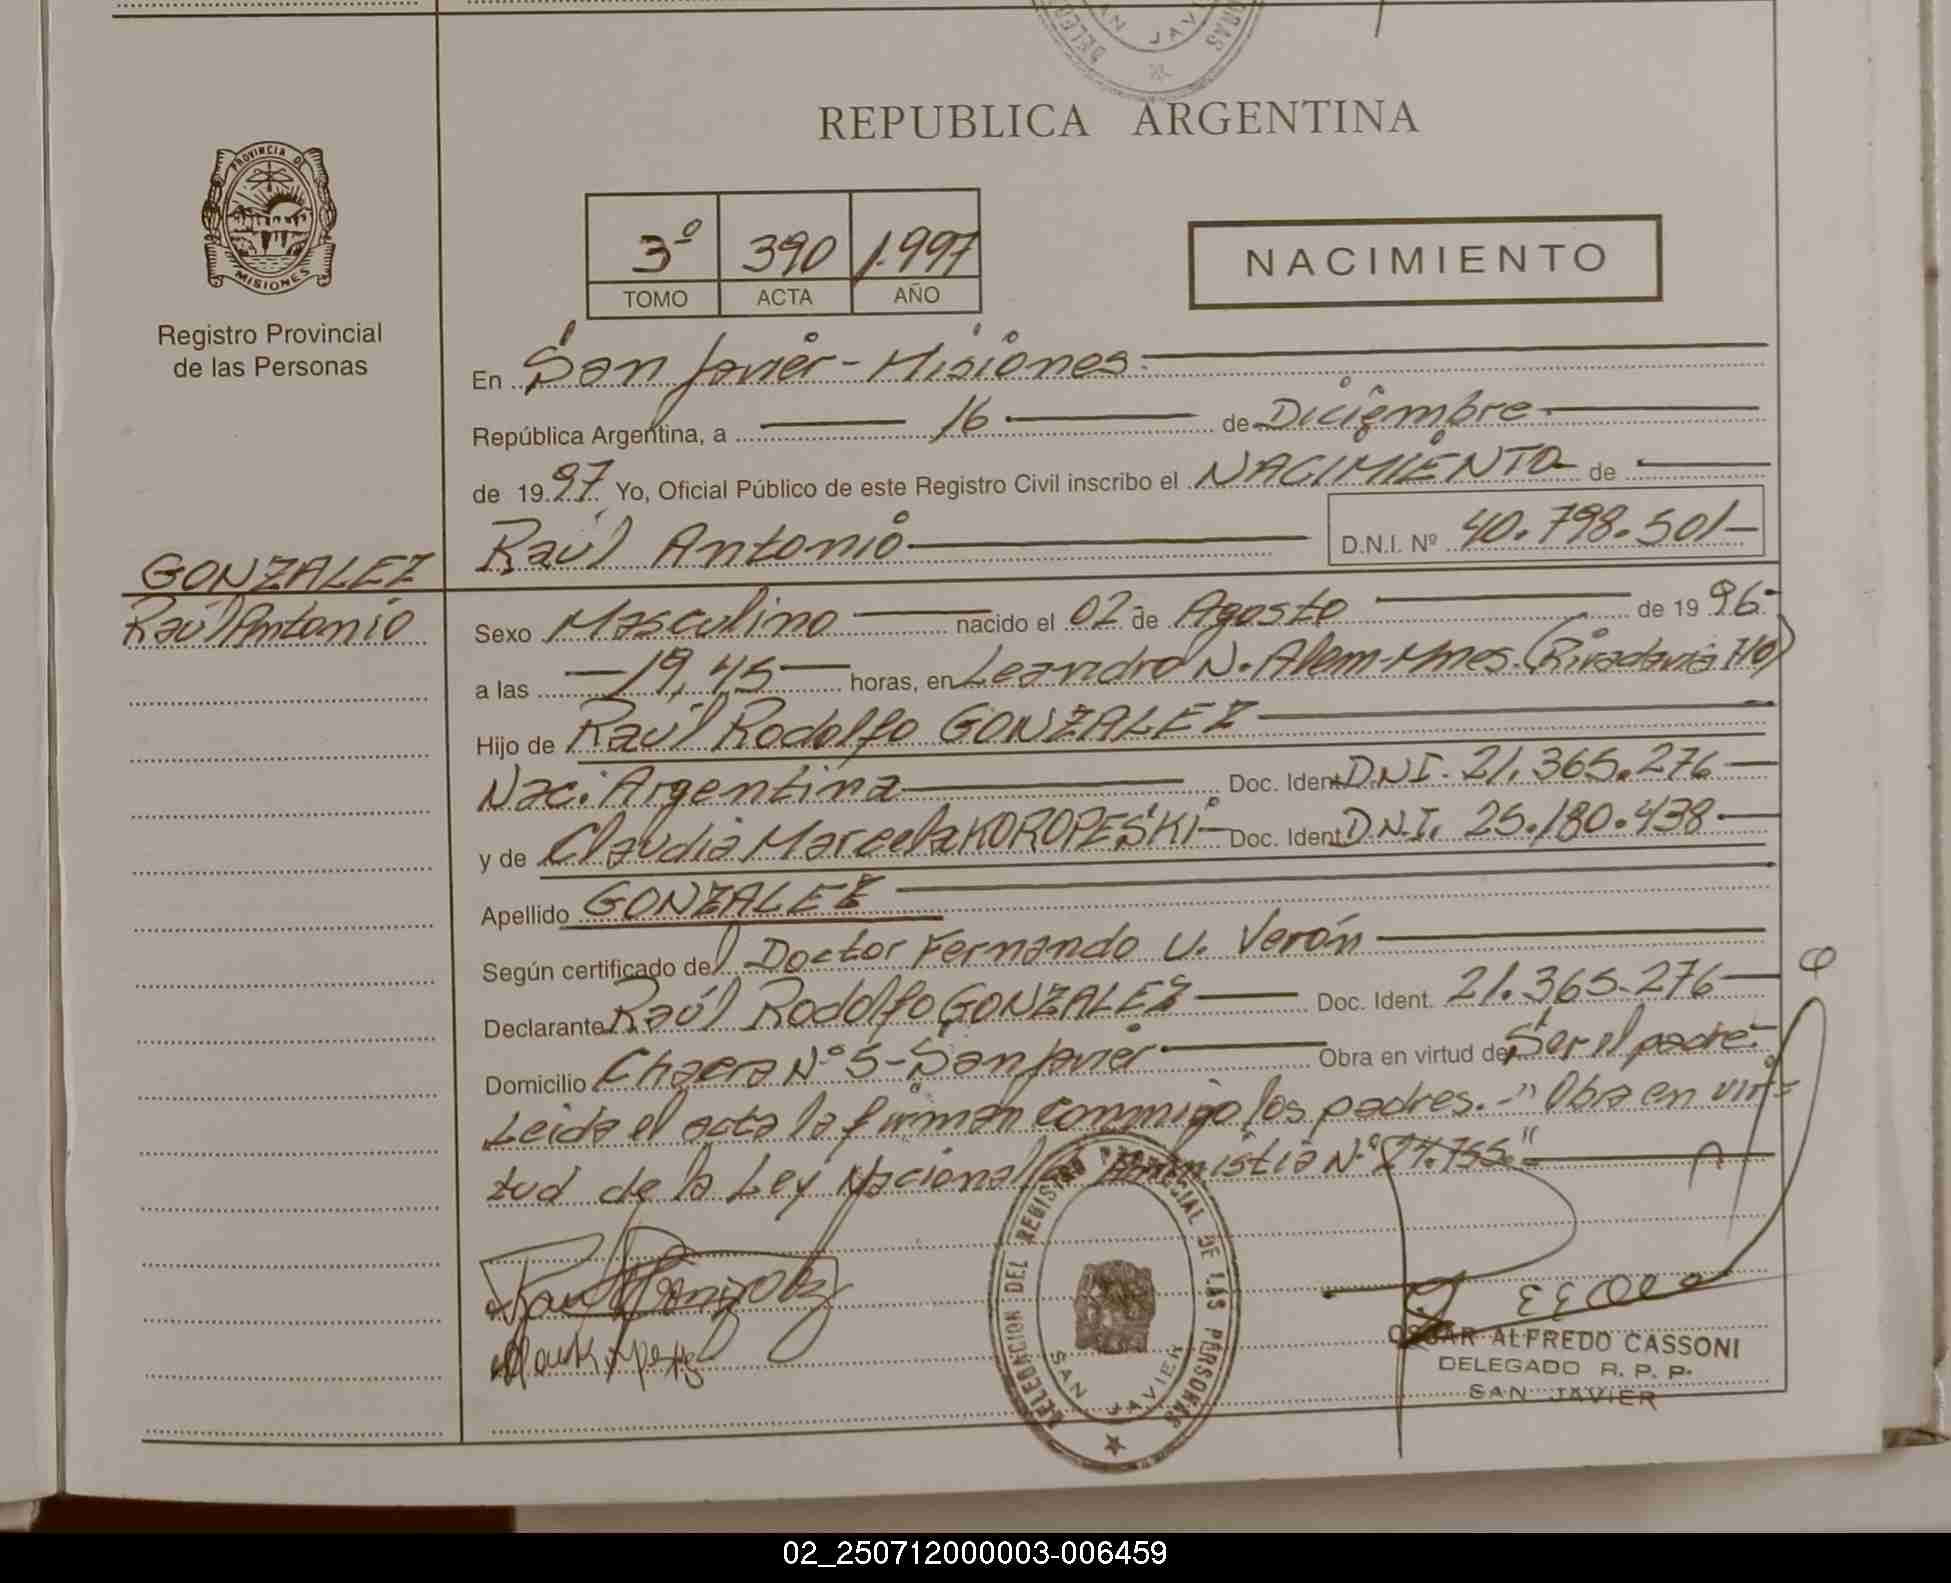 AN JAVI
REPUBLICA ARGENTINA
PROVINCIA DE
MISIONES
Registro Provincial
de las Personas
3º 390 1.997
TOMO ACTA AÑO
NACIMIENTO
En San Javier - Misiones.
República Argentina, a 16 de Diciembre
de 19 97 Yo, Oficial Público de este Registro Civil inscribo el NACIMIENTO de
Raúl Antonio D.N.I. Nº 40.798.501
GONZALEZ
Raúl Antonio
Sexo Masculino nacido el 02 de Agosto de 19 96
a las 19,45 horas, en Leandro N. Alem-Mnes. (Rivadavia 710)
Hijo de Raúl Rodolfo GONZALEZ
Nac. Argentina Doc. Ident D.N.I. 21.365.276
y de Claudia Marcela KOROPESKI Doc. Ident D.N.I. 25.180.438
Apellido GONZALEZ
Según certificado del Doctor Fernando U. Verón
Declarante Raúl Rodolfo GONZALEZ Doc. Ident. 21.365.276
Domicilio Chacra Nº 5 - San Javier Obra en virtud de Ser el padre.
Leida el acta la firman conmigo los padres. - " Obra en vir=
tud de la Ley Nacional de Amnistia Nº 24.755."
DELEGACION DEL REGISTRO PROVINCIAL DE LAS PERSONAS
SAN JAVIER
OSCAR ALFREDO CASSONI
DELEGADO R. P. P.
SAN JAVIER
02_250712000003-006459